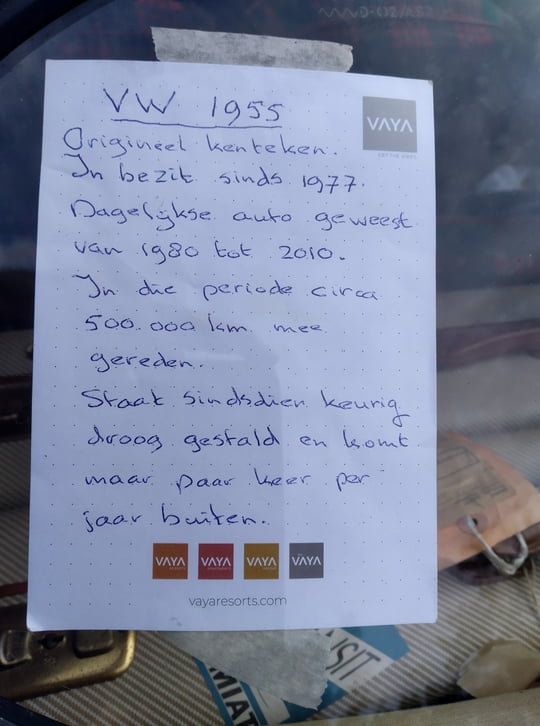 VW 1955
VAYA
GET THE VIBES
Origineel kenteken.
In bezit sinds 1977.
Dagelijkse auto geweest
van 1980 tot 2010.
In die periode circa
500.000 km mee
gereden.
Staat sindsdien keurig
droog gestald en komt
maar paar keer per
jaar buiten.
VAYA VAYA VAYA VAYA
vayaresorts.com